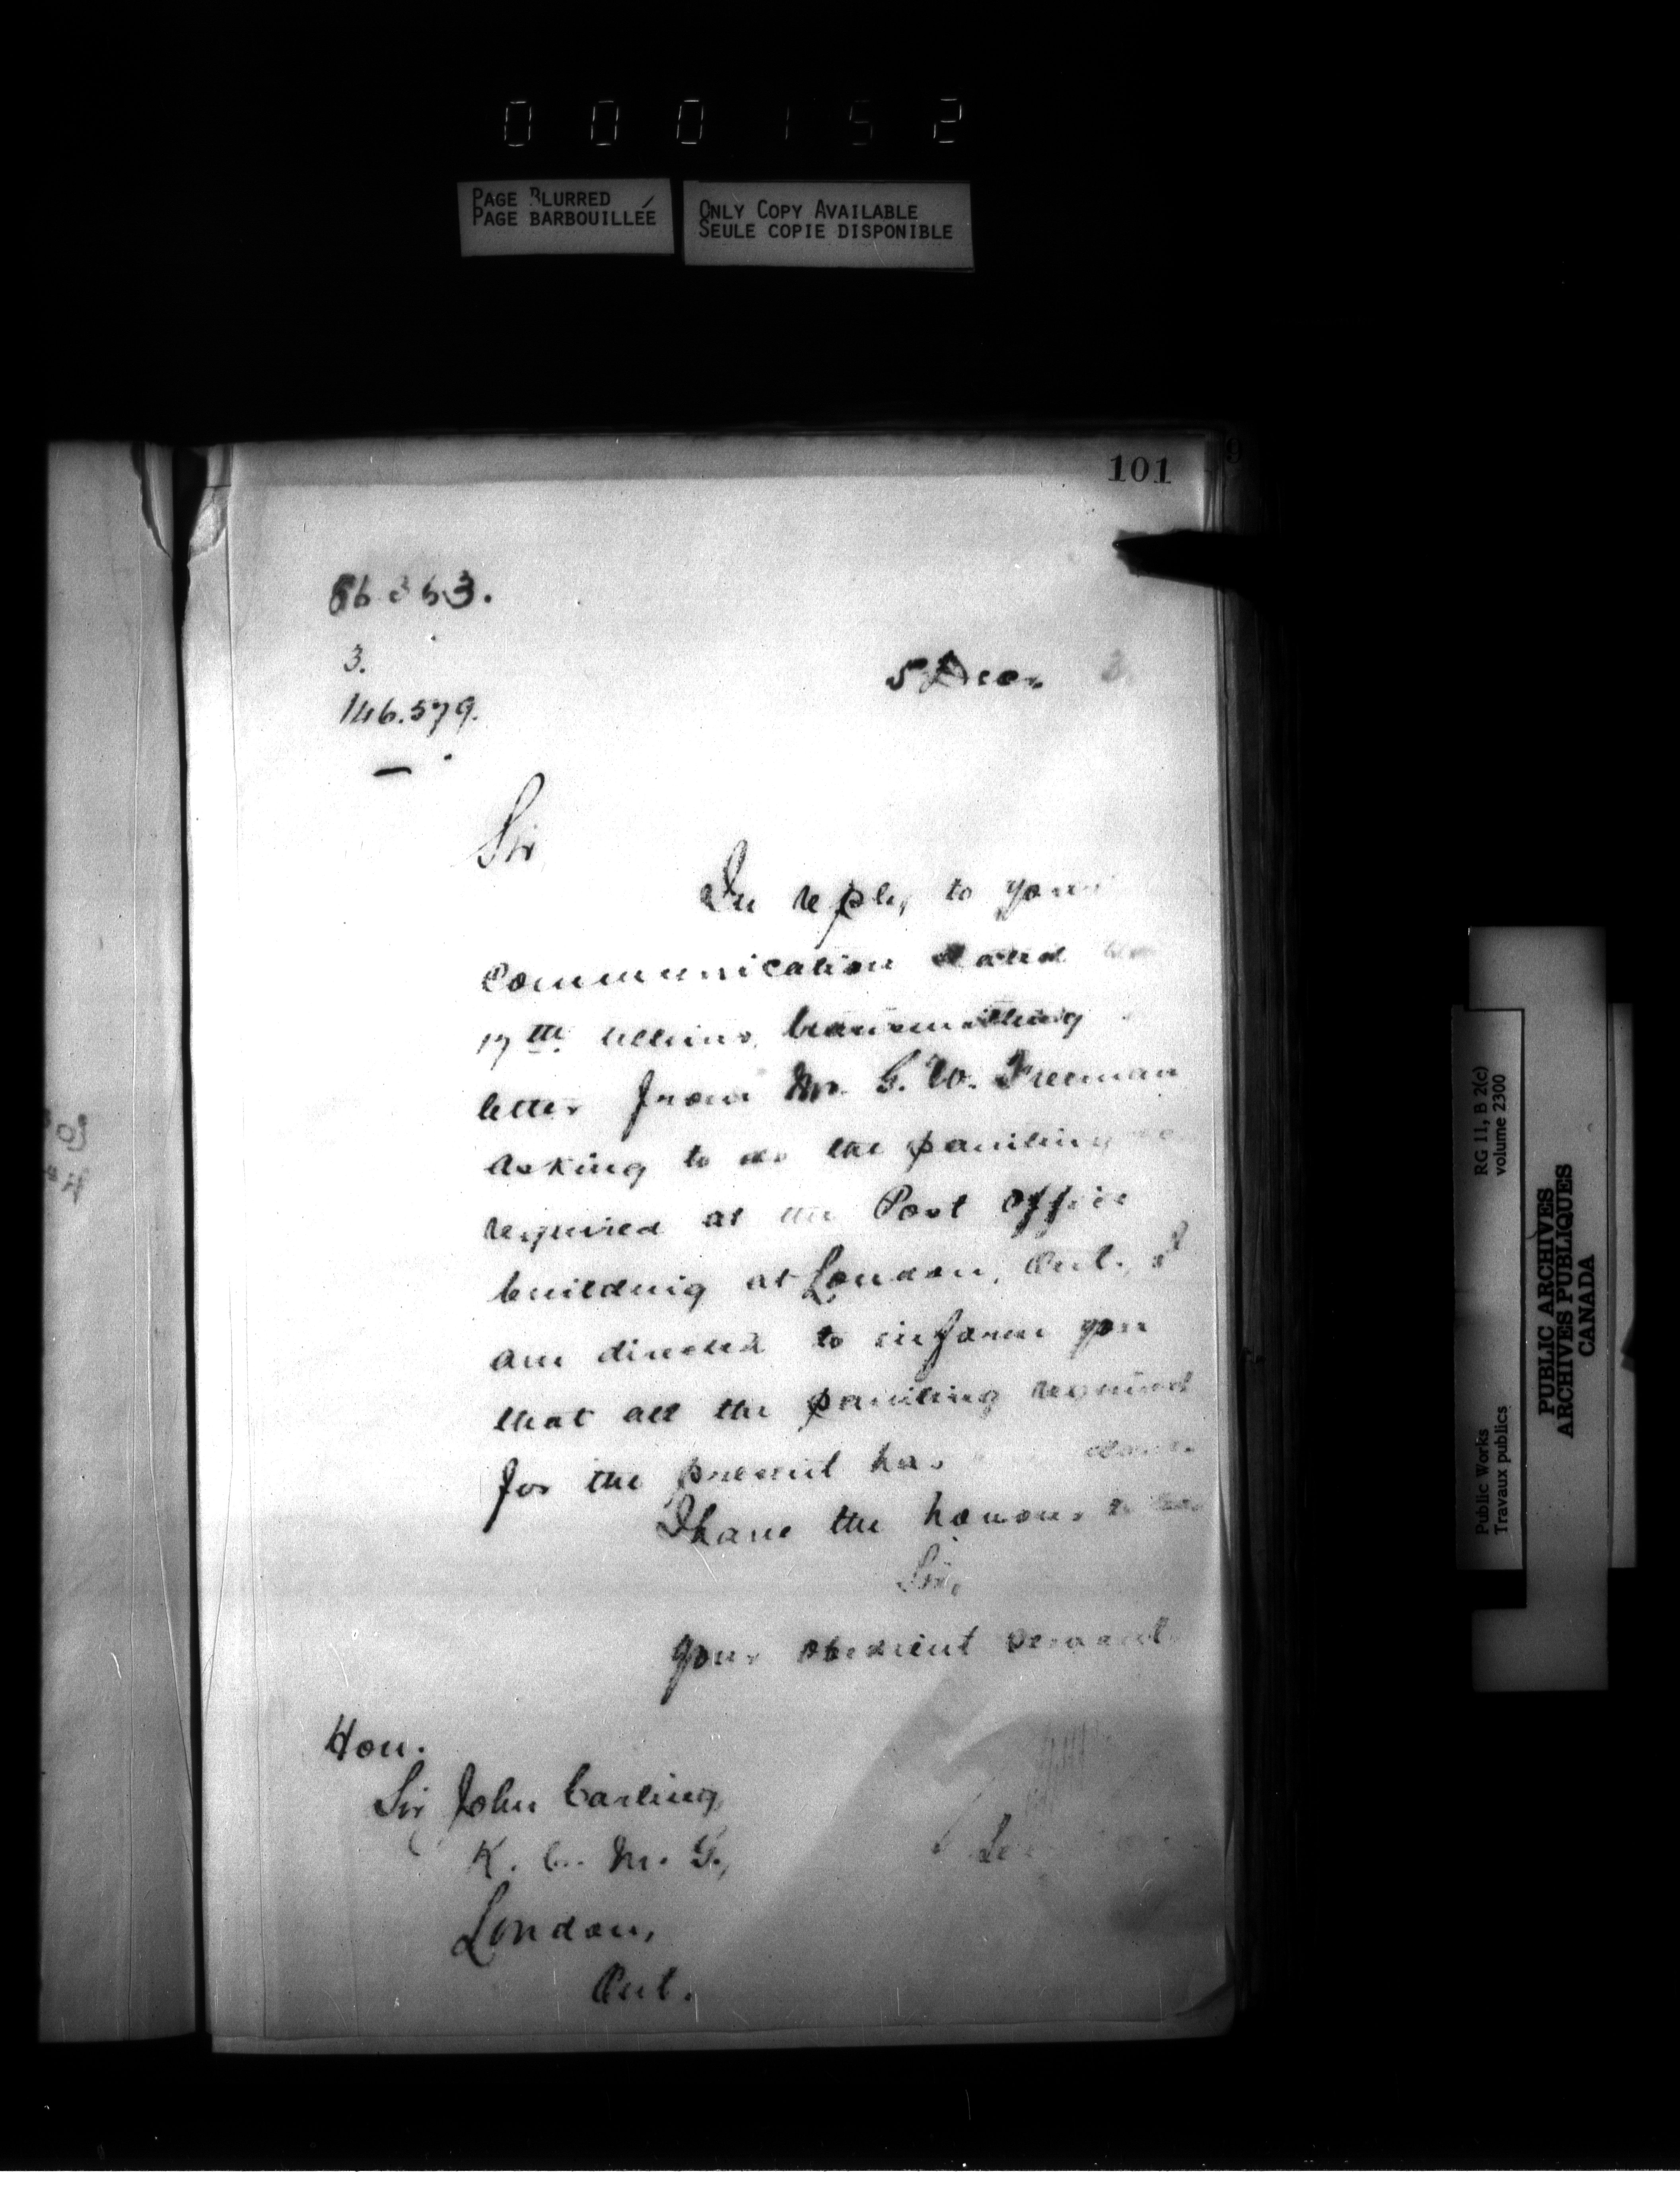 0 0 0 1 5 2
PAGE BLURRED
PAGE BARBOUILLÉE
ONLY COPY AVAILABLE
SEULE COPIE DISPONIBLE
101
3.
5 Dec.
146.579.
Sir
In reply to your
communication dated
17th ultimo, transmitting
letter from Mr. G. W. Freeman
asking to do the painting
required at the Post Office
building at London, Ont., I
am directed to inform you
that all the painting required
for the present has
I have the honour to be
Sir,
Your obedient servant
Hon.
Sir John Carling,
K. C. M. G.,
London,
Ont.
Public Works
Travaux publics
RG 11, B 2(c)
volume 2300
PUBLIC ARCHIVES
ARCHIVES PUBLIQUES
CANADA